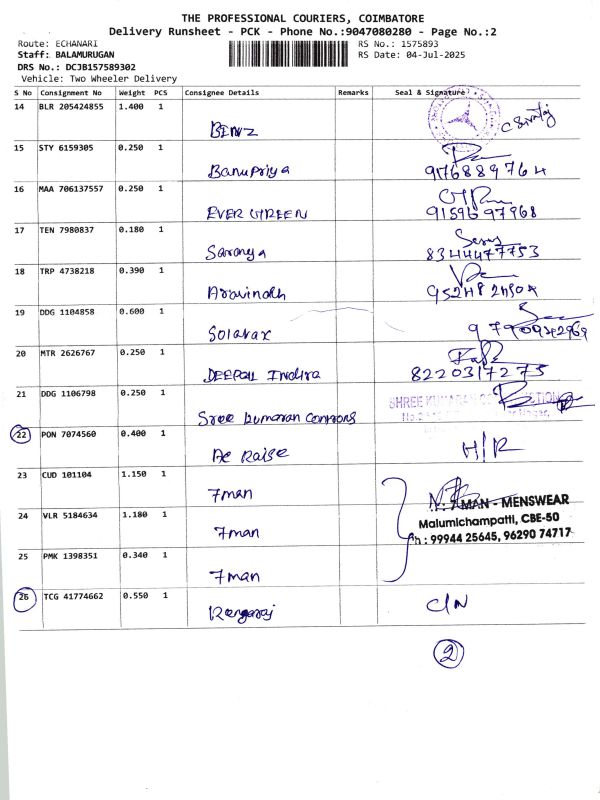 THE PROFESSIONAL COURIERS, COIMBATORE
Delivery Runsheet - PCK - Phone No.:9047080280 - Page No.:2
Route: ECHANARI RS No.: 1575893
Staff: BALAMURUGAN RS Date: 04-Jul-2025
DRS No.: DCJB157589302
Vehicle: Two Wheeler Delivery
S No Consignment No Weight PCS Consignee Details Remarks Seal & Signature
14 BLR 205424855 1.400 1
BENZ C Surataj
15 STY 6159305 0.250 1
Banupriya 9176889764
16 MAA 706137557 0.250 1
EVER GREEN 9159697968
17 TEN 7980837 0.180 1
Saranya 8344477753
18 TRP 4738218 0.390 1
Aravindh
19 DDG 1104858 0.600 1
Solarax 9790942969
20 MTR 2626767 0.250 1
DEEPAM Indhra 8220317275
21 DDG 1106798 0.250 1
Sree kumaran SHREE KUMARAN
22 PON 7074560 0.400 1
AC Raise H/R
23 CUD 101104 1.150 1
7man 7 MAN - MENSWEAR
24 VLR 5184634 1.180 1 Malumichampatti, CBE-50
7man Ph : 99944 25645, 96290 74717
25 PMK 1398351 0.340 1
7man
26 TCG 41774662 0.550 1
Rangaraj C/N
2